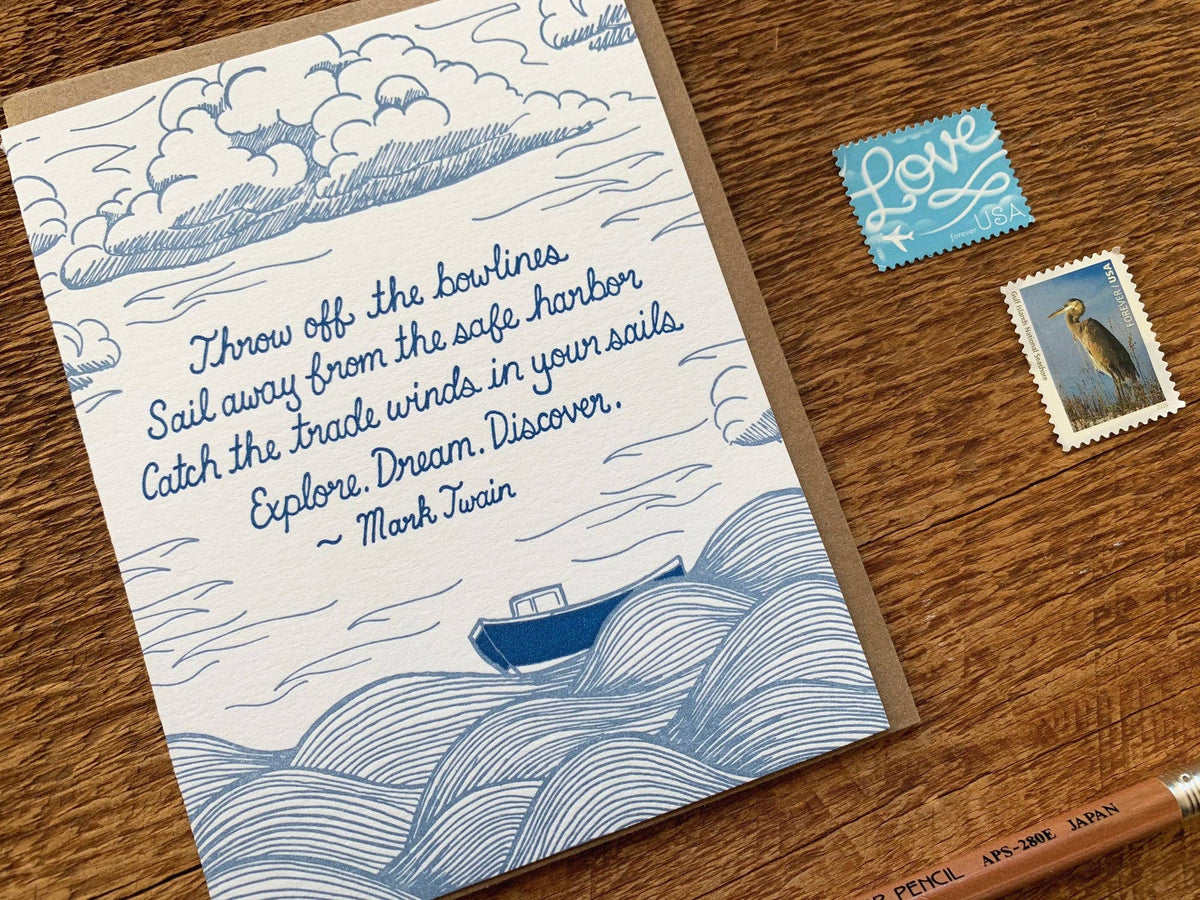 Throw off the bowlines
Sail away from the safe harbor
Catch the trade winds in your sails
Explore. Dream. Discover.
~ Mark Twain
Love
forever USA
Gulf Islands National Seashore
FOREVER / USA
PENCIL APS-280E JAPAN